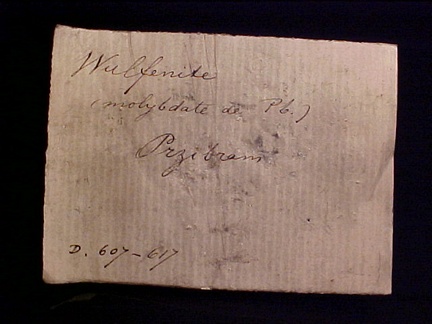 Wulfenite
(molybdate de Pb.)
Przibram
D. 607-617